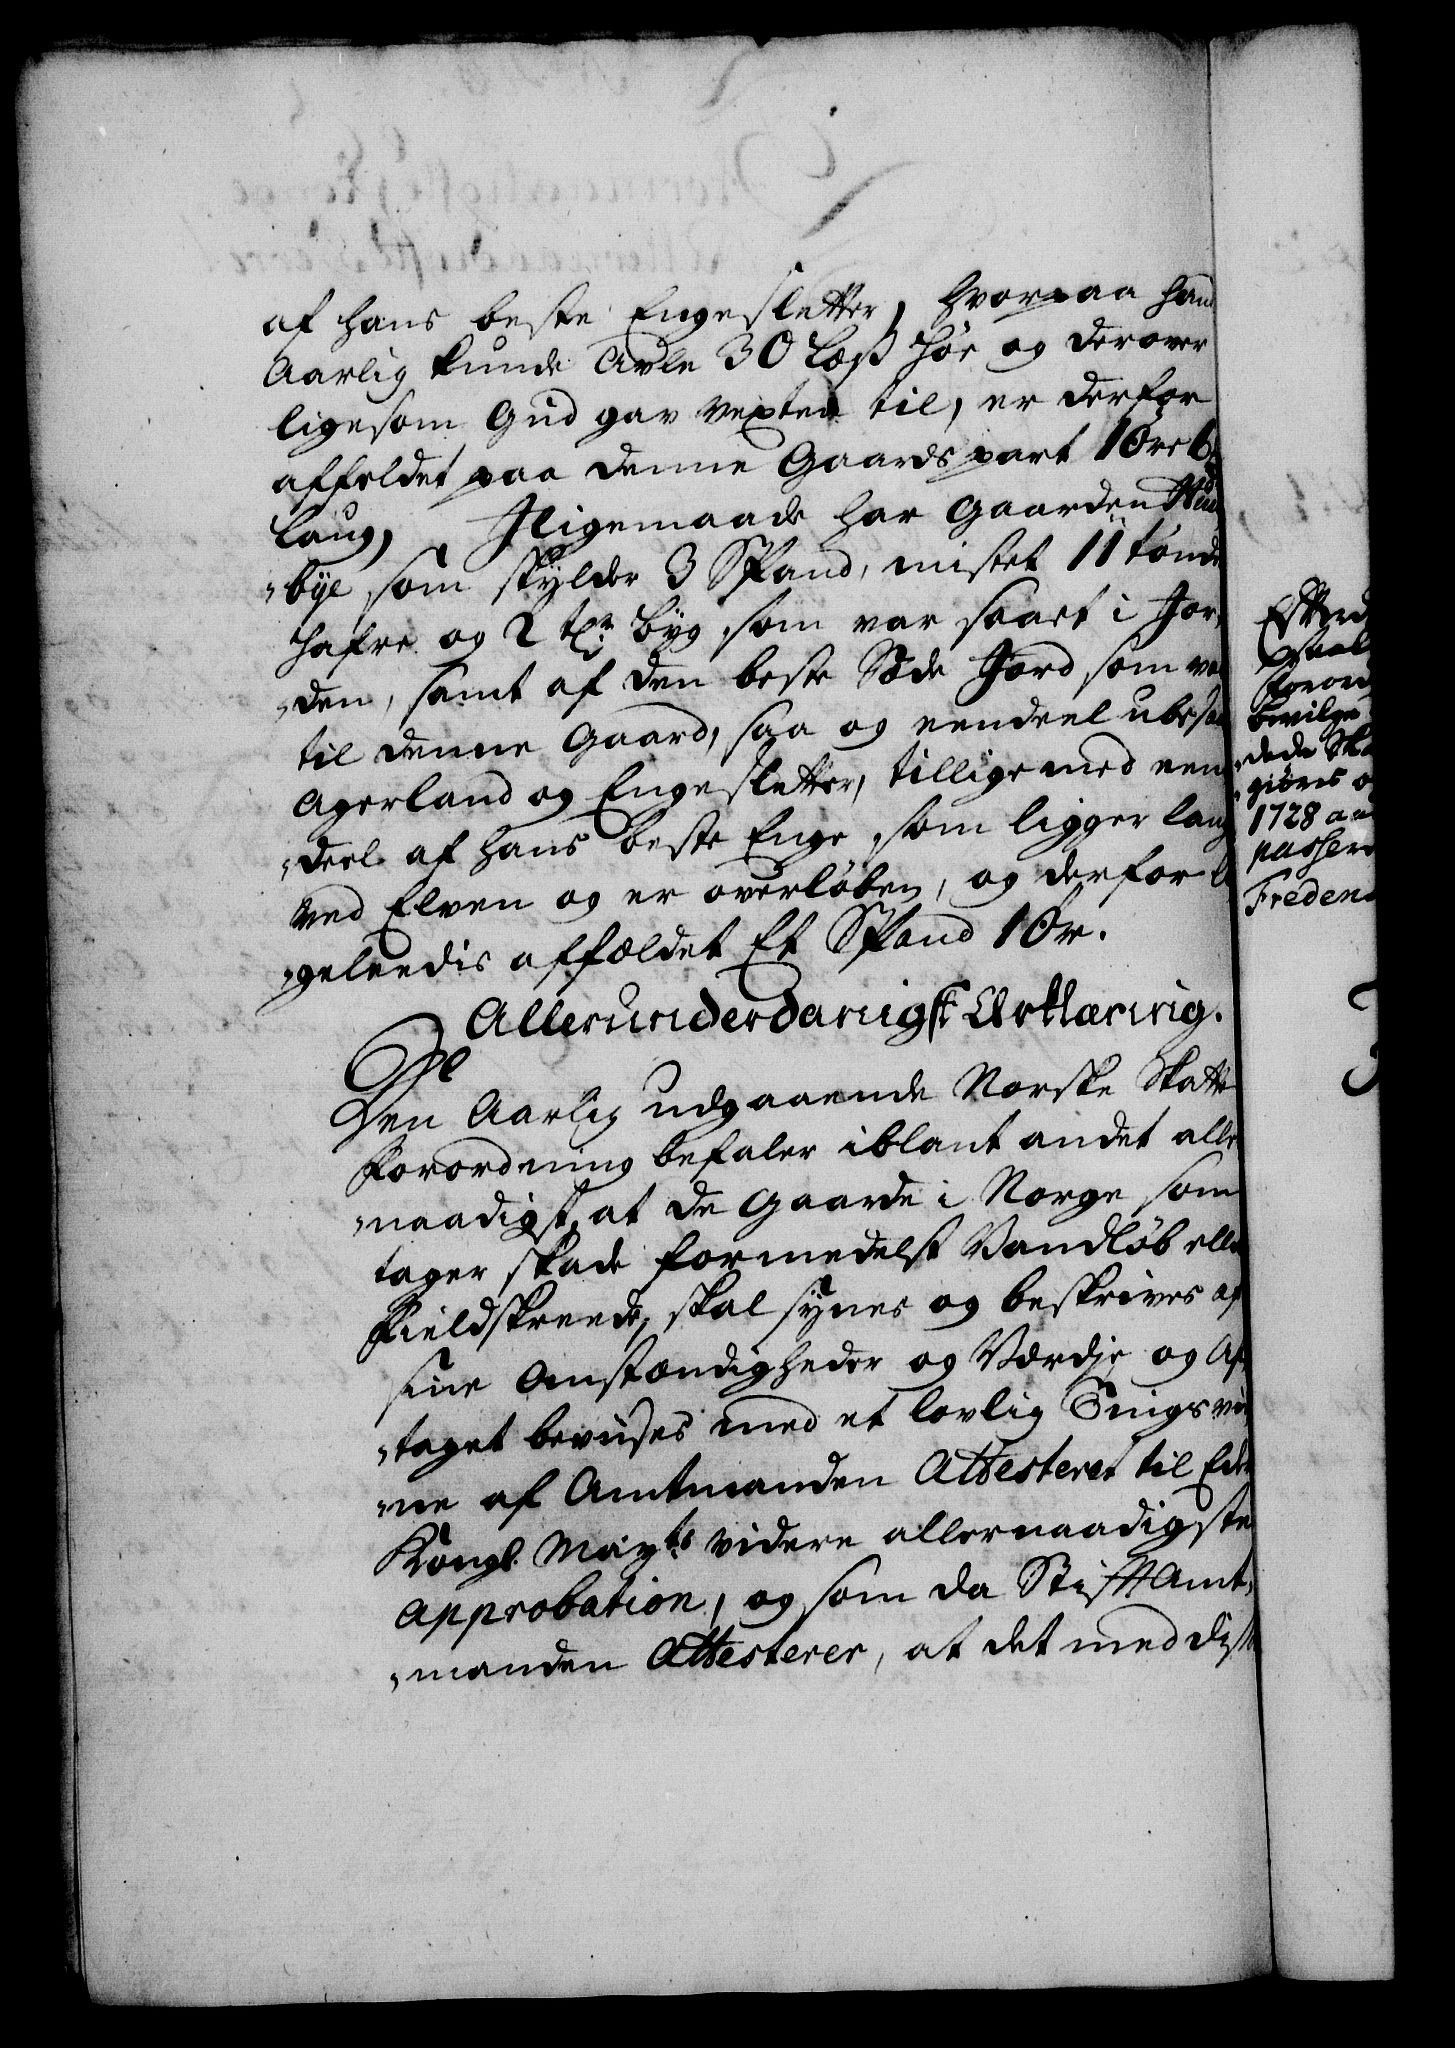 af hans beste Engesletter, hvorpaa hand
Aarlig kunde Avle 30 læß høe og derover
ligesom Gud gav vexten til, er derfor
affeldet paa denne Gaardspart 1 Øre 6
laug, Jligemaade har Gaarden
„bye som skylder 3 Spand, mistet 11 tønder
hafre og 2 tdr byg som var saaet i Jor„
„den, samt af den beste Sæde Jord som var
til denne Gaard, saa og eendeel ubesaaet
Agerland og Engesletter, tilligemed een„
„deel af hans beste Enge, som ligger langs
ved Elven og er overløben, og derfor li„
„geleedis affældet Et Spand 1 Øre.
Allerunderdanigst Erklæring.
Den Aarlig udgaaende Norske Skatte
Forordning befaler iblant andet aller„
„naadigst, at de Gaarde i Norge som
tager skade formedelst Vandløb eller
Fieldskreede, skal synes og beskrives af
sine Omstændigheder og Værdje og Af„
„taget beviises med et lovlig Tingsvid„
„ne af Amtmanden Attesteret til Eders
Kongl. Mayts videre allernaadigste
Approbation, og som da Stifftamt„
„manden Attesterer, at det med diss
Efter
Forord
bevilge
„dede Ska
giøres o
1728 a
passere
Fredens